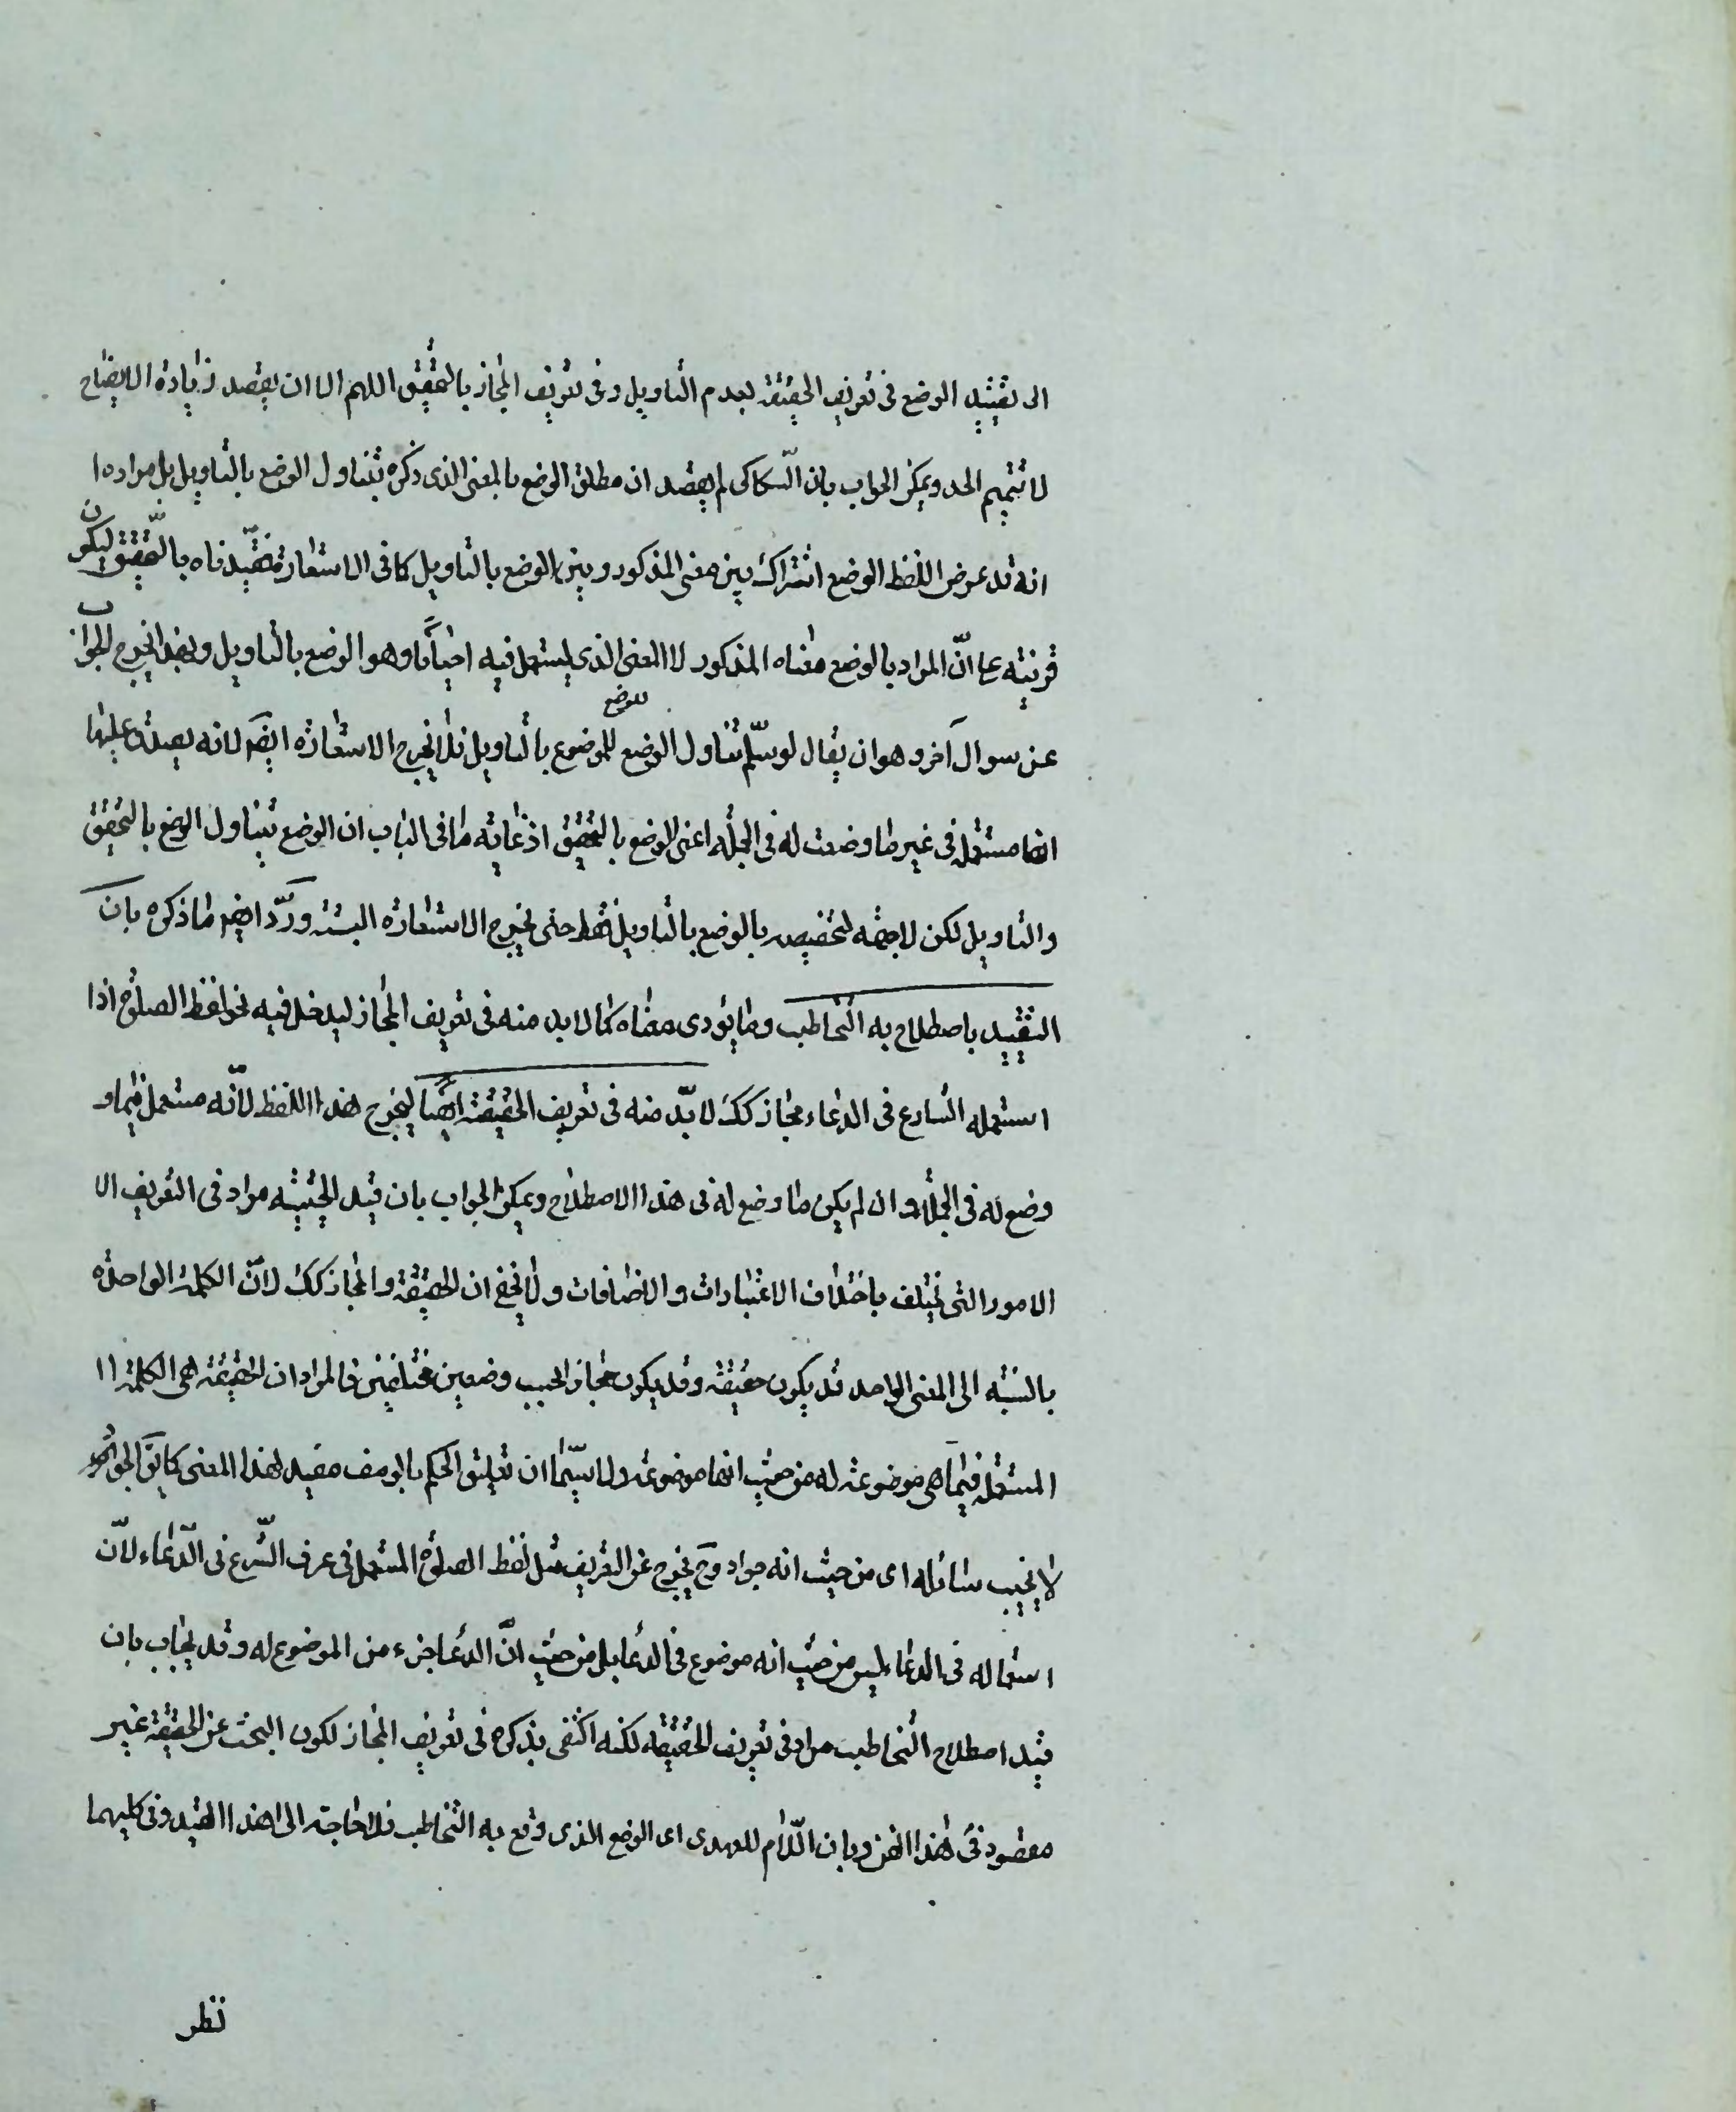 الى تقييد الوضع فى تعريف الحقيقة بعدم التاويل وفى تعريف المجاز بالتحقيق اللهم الا ان يقصد زيادة الايضاح
لا تتميم الحد ويمكن الجواب بان السّكاكى لم يقصد ان مطلق الوضع بالمعنى الذى ذكره يتناول الوضع بالتاويل بل مراده ا
انه قد عرض اللفظ الوضع اشتراك بين معنى المذكور وبين الوضع بالتاويل كما فى الاستعارة فقيّدناه بالتّحقيق ليكون
قرينته على انّ المراد بالوضع معناه المذكور لا المعنى الذى يستعمل فيه احياناً وهو الوضع بالتاويل وبهذا يخرج الجواب
عن سوال آخر وهو ان يقال لو سلّم تناول الوضع للوضع بالتاويل فلا يخرج الاستعارة ايضَ لانه يصدق عليها
انها مستعملة فى غير ما وضعت له فى الجملة اعنى الوضع بالتحقيق اذ غاية ما فى الباب ان الوضع يتناول الوضع بالتحقيق
والتاويل لكن لا جهة لتخصيصه بالوضع بالتاويل فقط حتى يخرج الاستعارة البتة وردّ ايضا ما ذكره بان
التقييد باصطلاح به التخاطب وما يؤدى معناه كما لا بد منه فى تعريف المجاز ليدخل فيه نحو لفظ الصلوة اذا
استعمله الشارع فى الدعاء مجاز كك لا بدّ منه فى تعريف الحقيقة ايضاً ليخرج هذا اللفظ لانّه مستعمل فيما و
وضع له فى الجملة وان لم يكن ما وضع له فى هذا الاصطلاح ويمكن الجواب بان قيد الحيثية مراد فى التعريف الا
الامور التى تختلف باختلاف الاعتبارات والاضافات ولا يخفى ان الحقيقة والمجاز كك لانّ الكلمة الواحدة
بالنسبة الى المعنى الواحد قد يكون حقيقة وقد يكون مجاز الحسب وضعين مختلفين فالمراد ان الحقيقة هى الكلمة ا ا
المستعملة فيما هى موضوعة له من حيث انها موضوعة ولا سيّما ان تعليق الحكم بالوصف مفيد لهذا المعنى كما يقَ الجواد
لا يخيب سائله اى من حيث انه جواد وح يخرج عن التعريف مثل لفظ الصلوة المستعمل فى عرف الشّرع فى الدّعاء لانّ
استعماله فى الدعاء ليس من حيث انه موضوع فى الدعا بل من حيث انّ الدعا جزء من الموضوع له وقد يجاب بان
قيد اصطلاح التخاطب مراد فى تعريف الحقيقه لكنه اكتفى بذكره فى تعريف المجاز لكون البحث عن الحقيقة غير
مقصود فى هذا الفن وبان اللّام للعهدى اى الوضع الذى وقع به التخاطب فلا حاجة الى هذا القيد وفى كليهما
نظر